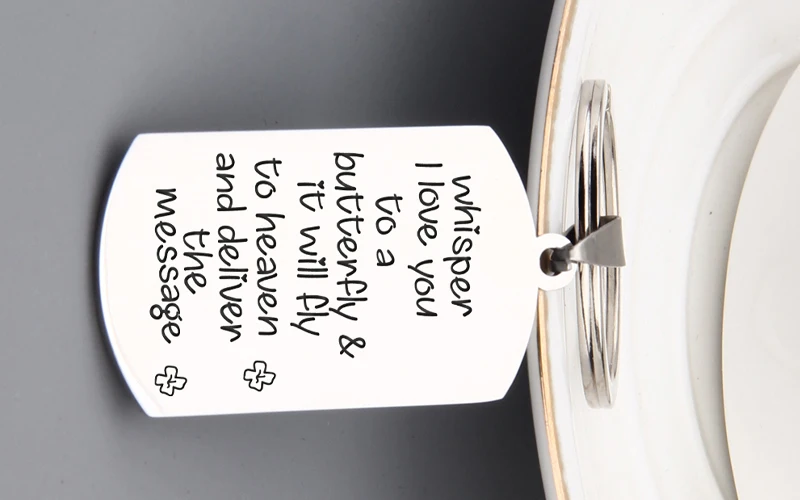 whisper
I love you
to a
butterfly &
it will fly
to heaven
and deliver
the
message